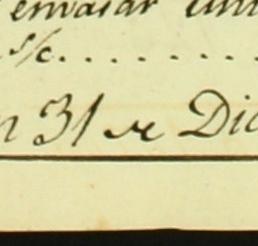 envasar
s/c..........
n 31 de Dic